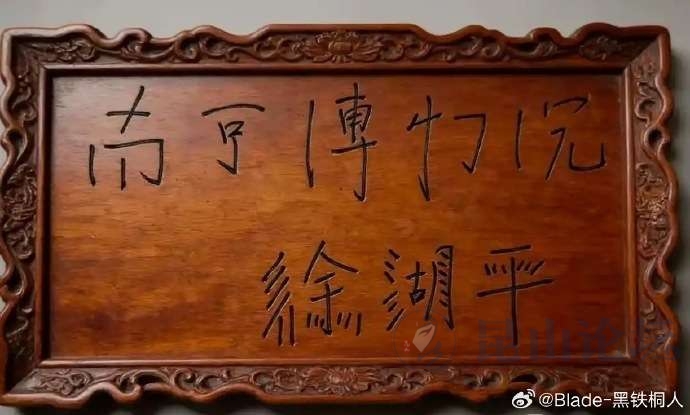 南京博物院
徐湖平
@Blade-黑铁桐人